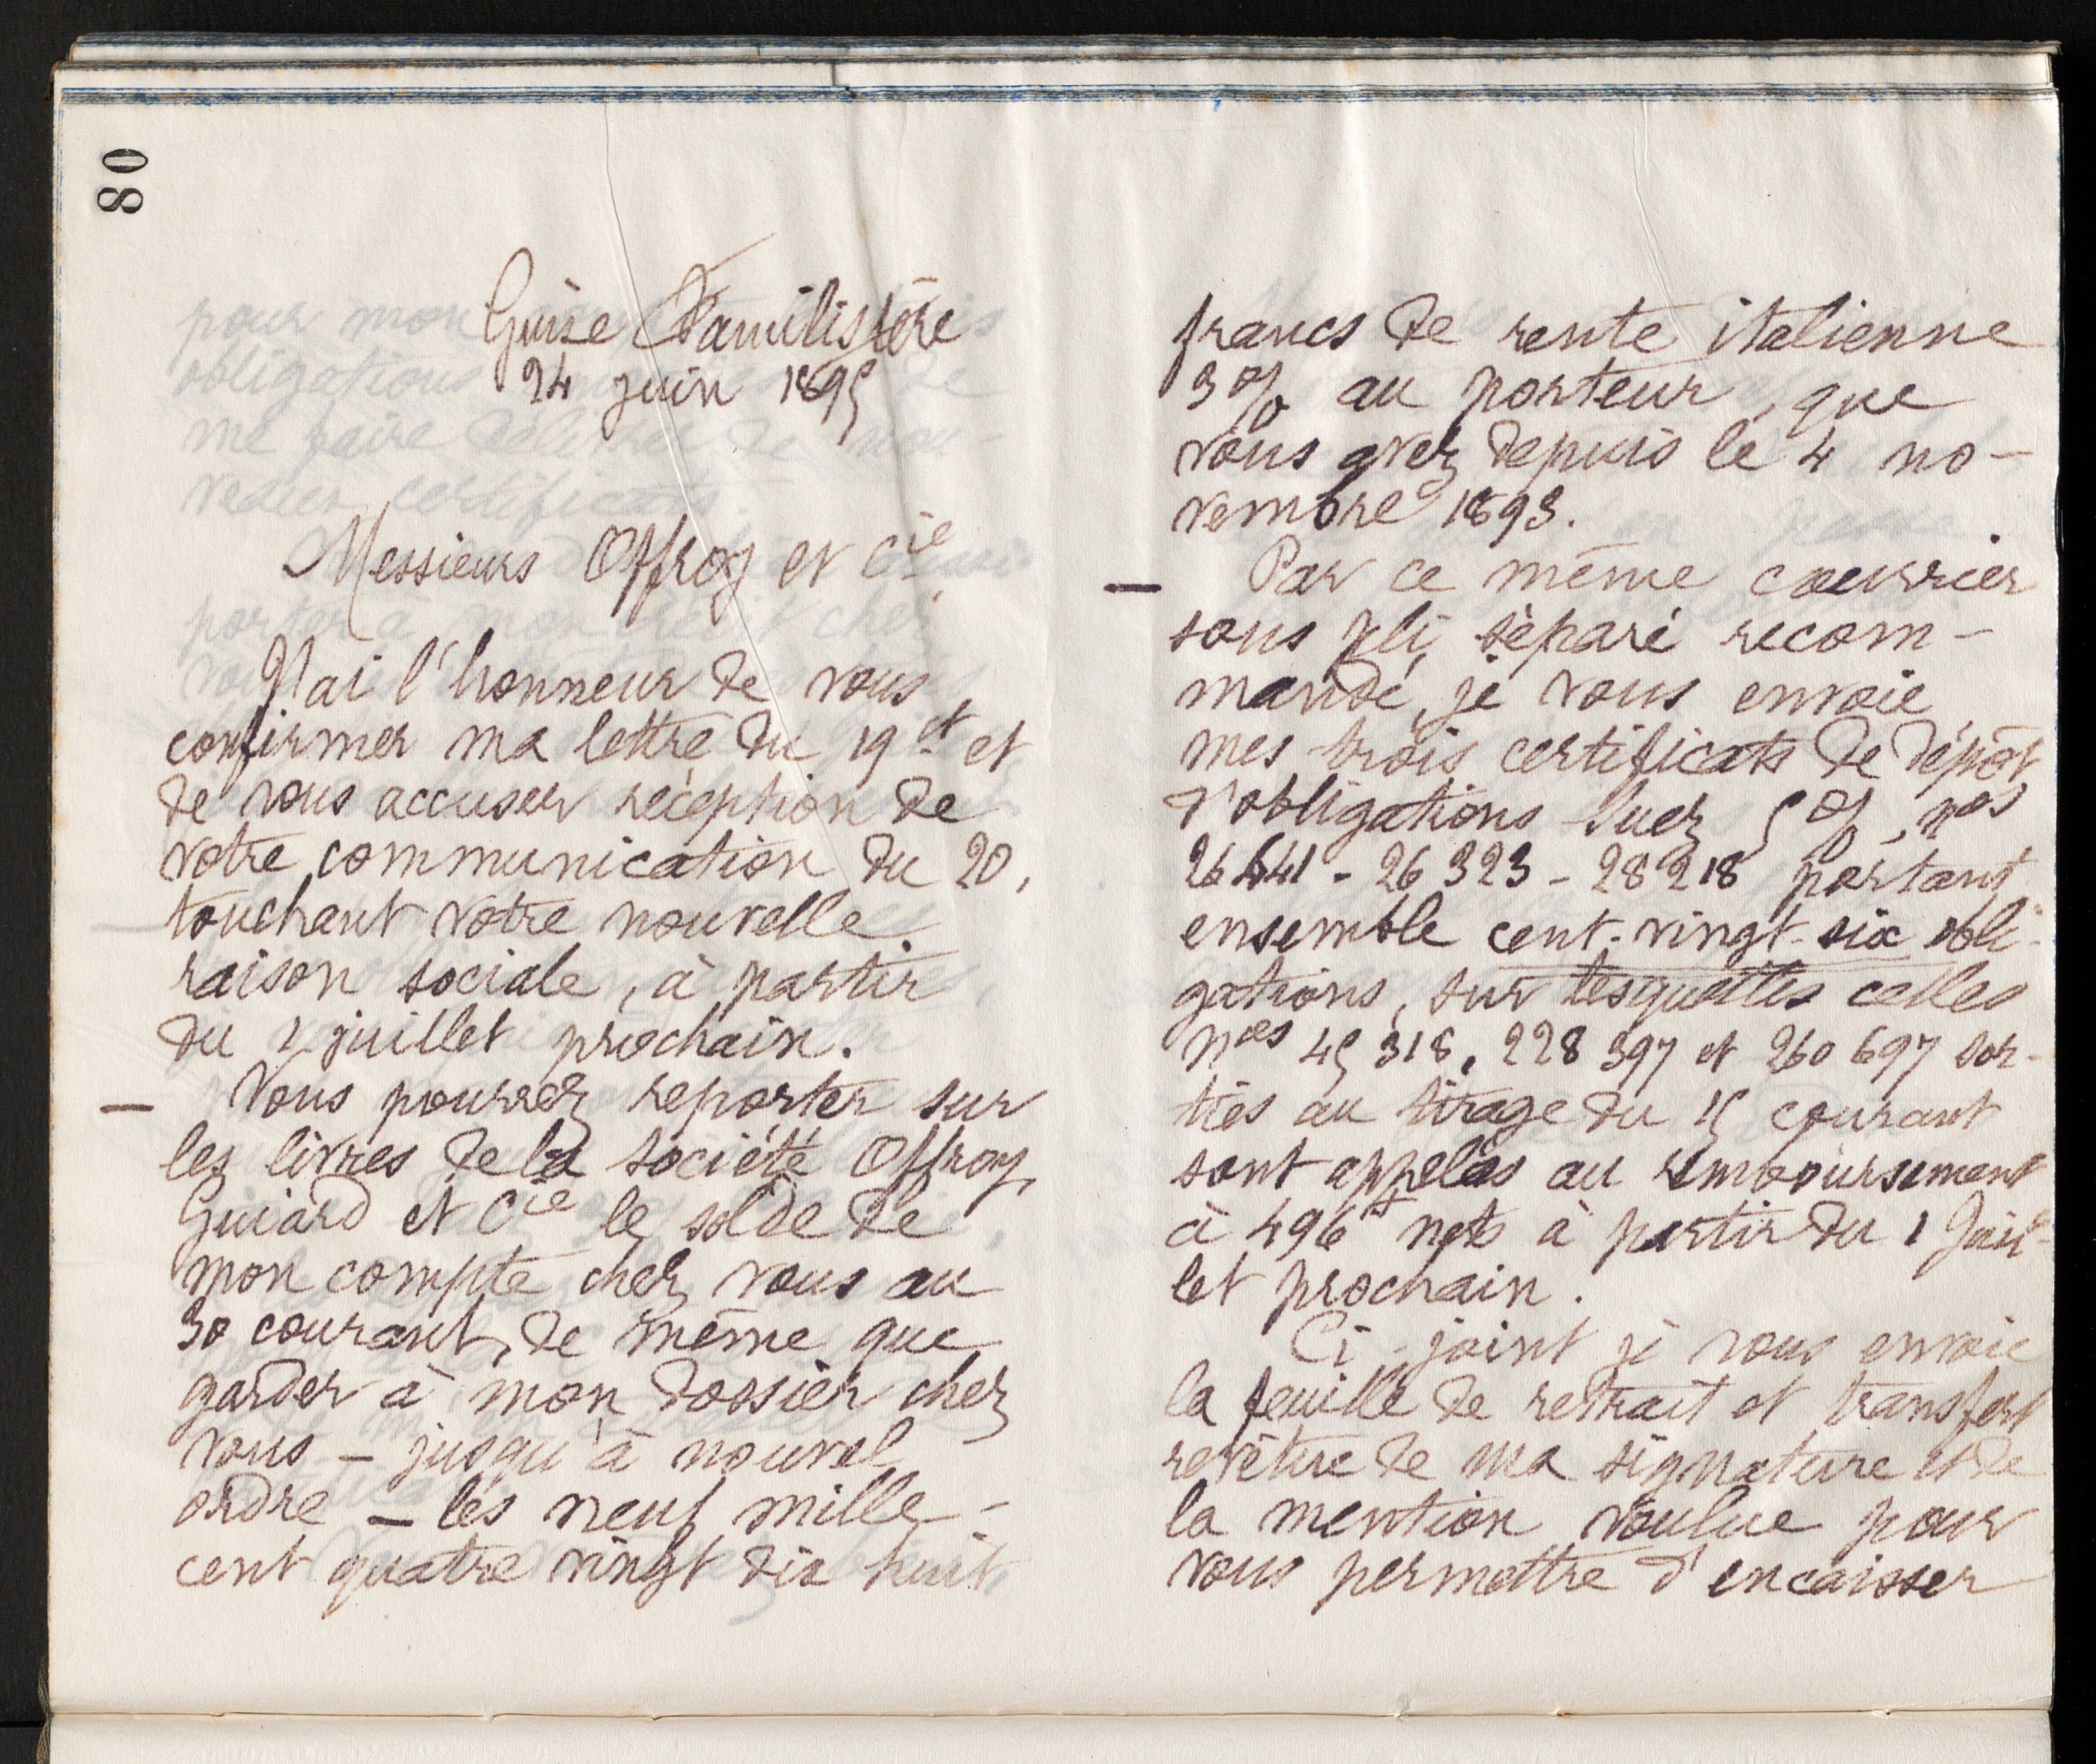 80
Guise Familistère
24 juin 1895
Messieurs Offroy et Cie,
J'ai l'honneur de vous
confirmer ma lettre du 19 ct et
de vous accuser réception de
votre communication du 20,
touchant votre nouvelle
raison sociale, à partir
du 1 juillet prochain.
— Vous pourrez reporter sur
les livres de la société Offroy,
Guiard et Cie le solde de
mon compte chez vous au
30 courant, de même que
garder à mon dossier chez
vous — jusqu'à nouvel
ordre — les neuf mille
cent quatre vingt dix huit
francs de rente italienne
3% au porteur, que
vous avez depuis le 4 no-
vembre 1893.
— Par ce même courrier
sous pli séparé recom-
mandé, je vous envoie
mes trois certificats de dépôt
d'obligations Suez 5%, nos
26441 - 26323 - 28218 portant
ensemble cent-vingt-six obli-
gations, sur lesquelles celles
nos 45318, 228397 et 260697 sor-
ties au tirage du 15 courant
sont appelées au remboursement
à 496f nets à partir du 1 juil-
let prochain.
Ci-joint je vous envoie
la feuille de retrait et transfert
revêtue de ma signature et de
la mention voulue pour
vous permettre d'encaisser